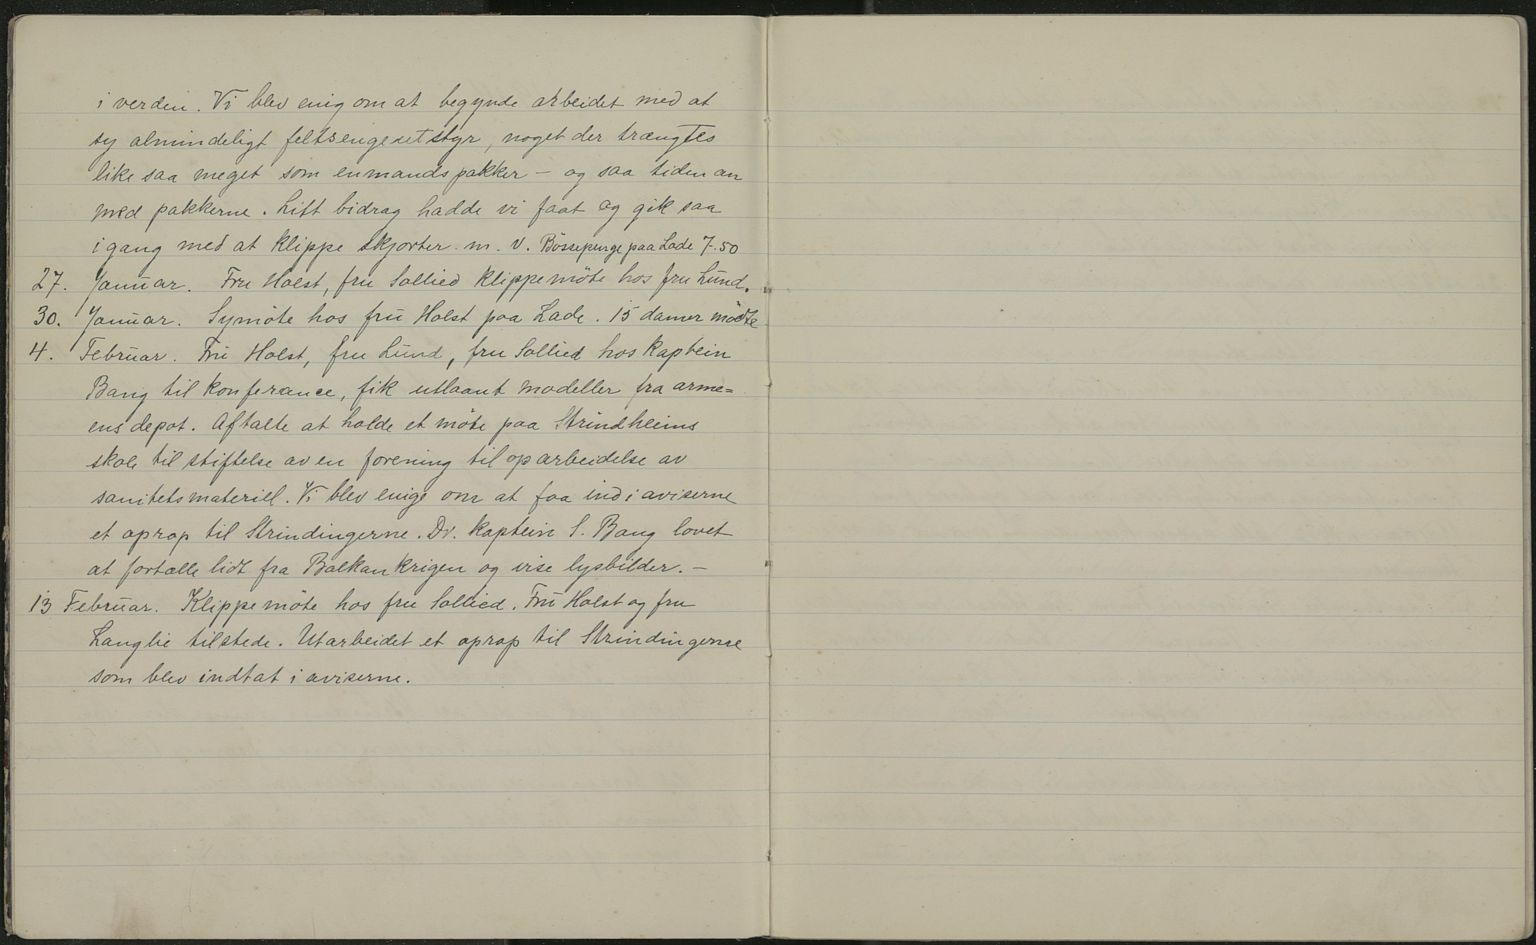 i verden. Vi blev enig om at begynde arbeidet med at
sy almindeligt feltsengeutstyr, noget der trængtes
like saa meget som enmandspakker – og saa tiden an
med pakkerne. Litt bidrag hadde vi faat og gik saa
igang med at klippe skjorter m. v. Bössepenge paa Lade 7.50
27. Januar. Fru Holst, fru Sollied klippemöte hos fru Lund.
30. Januar. Symöte hos fru Holst paa Lade. 15 damer mödte
4. Februar. Fru Holst, fru Lund, fru Sollied hos kaptein
Bang til konferance, fik utlaant modeller fra arme=
ens depot. Aftalte at holde et möte paa Strindheims
skole til stiftelse av en forening til oparbeidelse av
sanitetsmateriel. Vi blev enige om at faa ind i aviserne
et oprop til Strindingerne. Dr. kaptein S. Bang lovet
at fortælle lidt fra Balkankrigen og vise lysbilder. –
13 Februar. Klippemöte hos fru Sollied. Fru Holst og fru
Langlie tilstede. Utarbeidet et oprop til Strindingerne
som blev indtat i aviserne.